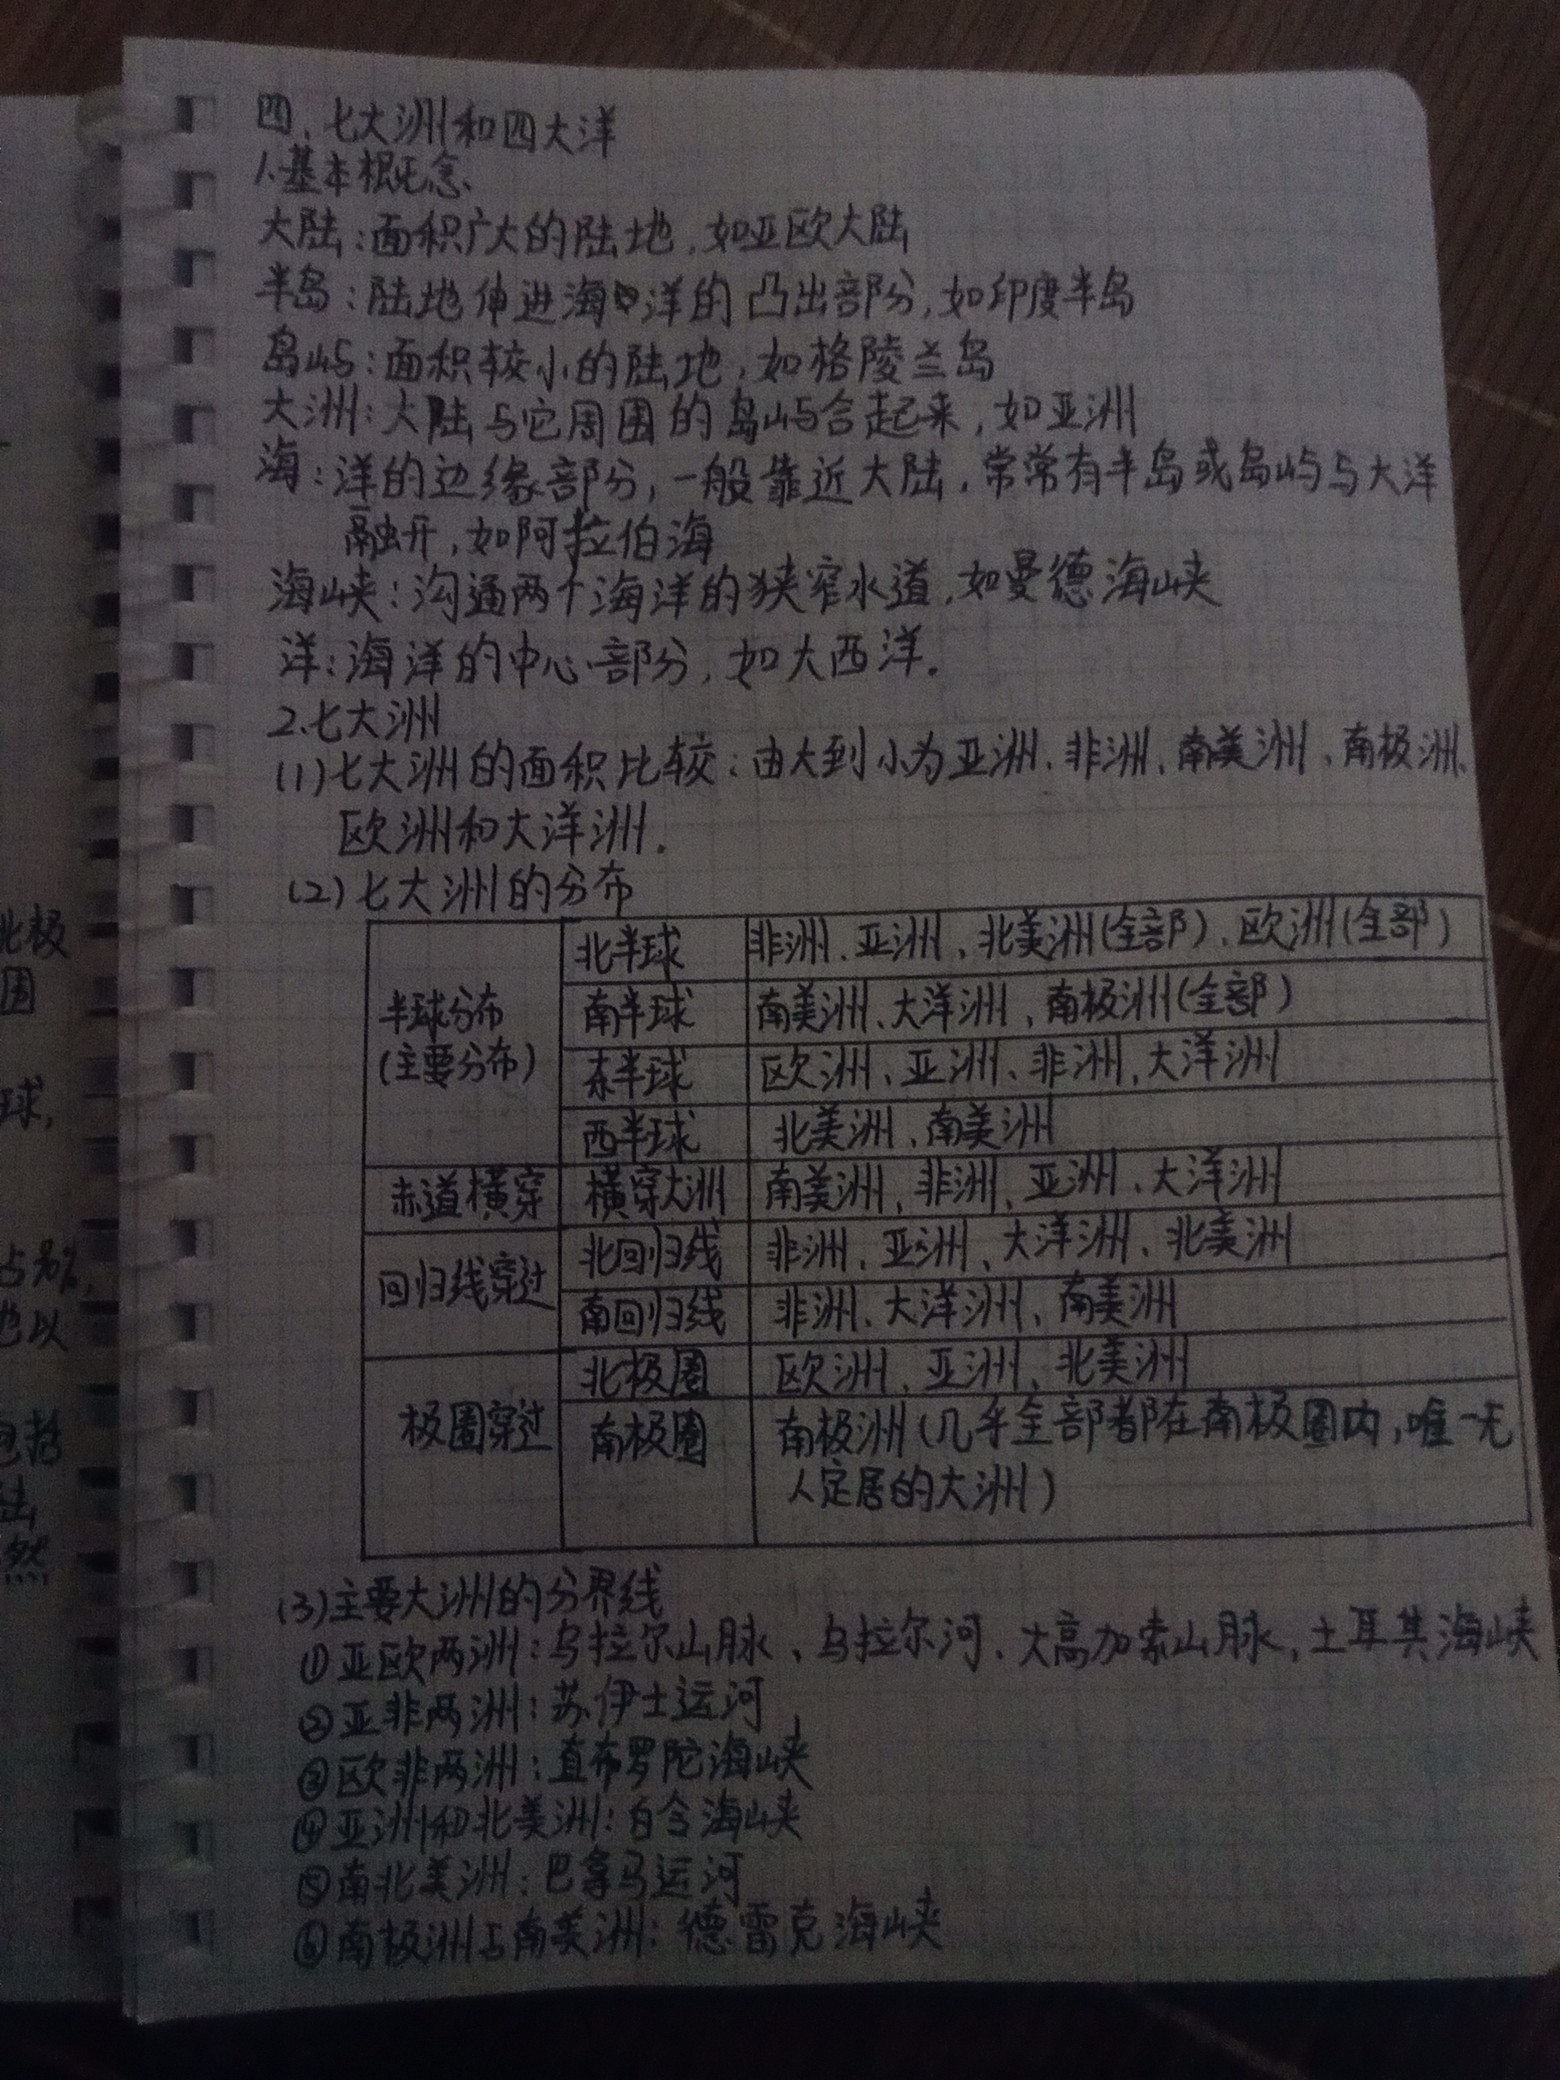 四、七大洲和四大洋
1.基本概念
大陆:面积广大的陆地,如亚欧大陆
半岛:陆地伸进海洋的凸出部分,如印度半岛
岛屿:面积较小的陆地,如格陵兰岛
大洲:大陆与它周围的岛屿合起来,如亚洲
海:洋的边缘部分,一般靠近大陆,常常有半岛或岛屿与大洋
融开,如阿拉伯海
海峡:沟通两个海洋的狭窄水道,如曼德海峡
洋:海洋的中心部分,如大西洋.
2.七大洲
(1)七大洲的面积比较:由大到小为亚洲、非洲、南美洲、南极洲、
欧洲和大洋洲.
(2)七大洲的分布
半球分布
(主要分布)
北半球 非洲、亚洲、北美洲(全部)、欧洲(全部)
南半球 南美洲、大洋洲、南极洲(全部)
东半球 欧洲、亚洲、非洲、大洋洲
西半球 北美洲、南美洲
赤道横穿 横穿大洲 南美洲、非洲、亚洲、大洋洲
回归线穿过
北回归线 非洲、亚洲、大洋洲、北美洲
南回归线 非洲、大洋洲、南美洲
极圈穿过
北极圈 欧洲、亚洲、北美洲
南极圈 南极洲(几乎全部都在南极圈内,唯一无
人定居的大洲)
(3)主要大洲的分界线
①亚欧两洲:乌拉尔山脉、乌拉尔河、大高加索山脉,土耳其海峡
②亚非两洲:苏伊士运河
③欧非两洲:直布罗陀海峡
④亚洲和北美洲:白令海峡
⑤南北美洲:巴拿马运河
⑥南极洲与南美洲:德雷克海峡
北极
围
球,
也以
包括
法
然